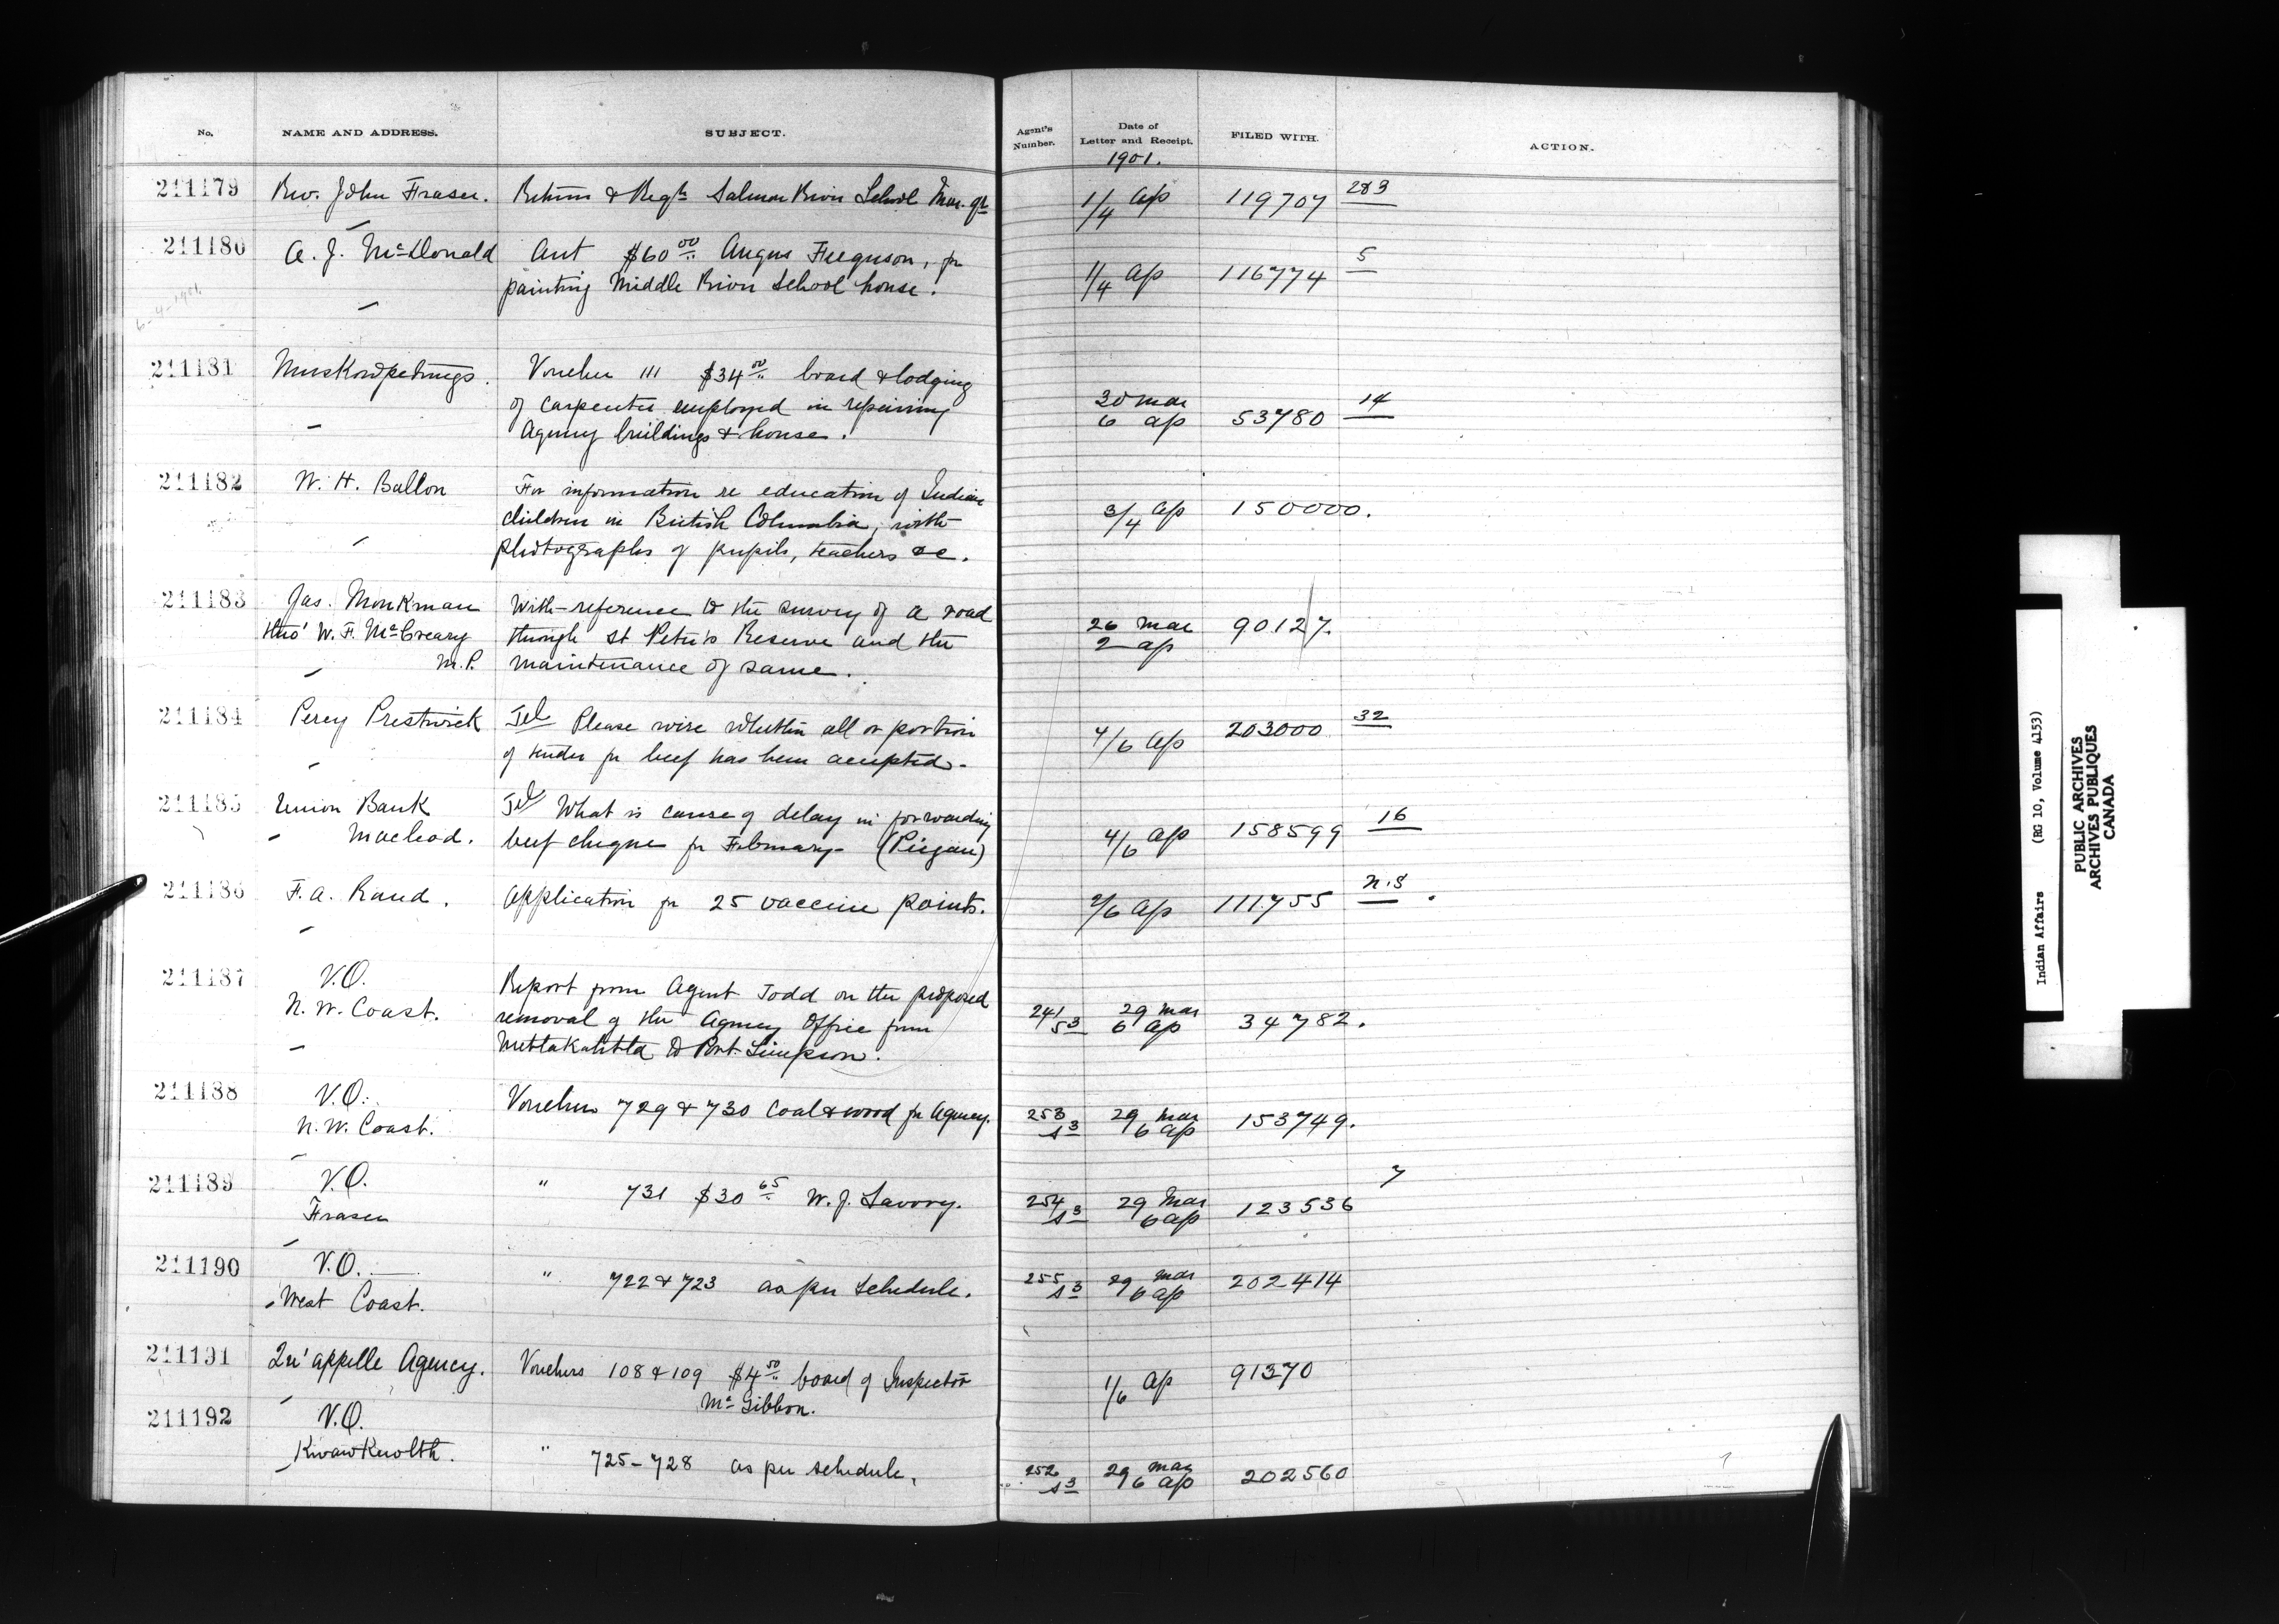 No. NAME AND ADDRESS. SUBJECT. Agent's Number. Date of Letter and Receipt. FILED WITH. ACTION.
1901.
211179 Rev. John Fraser. Returns & Reqn Salmon River School Mar. qr 1/4 ap 119707 283
211180 A. J. McDonald Act $60 00 Angus Ferguson, for
painting Middle River School house. 1/4 ap 116774 5
6-4-1901
211181 Muskowpetungs. Voucher 111 $34 00 board & lodging
of carpenter employed in repairing 20 mar
Agency buildings & house. 6 ap 53780 14
211182 W. H. Ballon For information re education of Indian
children in British Columbia, with 3/4 ap 150000.
photographs of pupils, teachers &c.
211183 Jas. Monkman With reference to the survey of a road
thro' W. F. McCreary through St Peter's Reserve and the 26 mar 90127.
M.P. maintenance of same. 2 ap
211184 Percy Prestwick Tel Please wire whether all or portion
of tender for beef has been accepted. 4/6 ap 203000 32
211185 Union Bank Tel What is cause of delay in forwarding
Macleod. beef cheque for February (Piegan) 4/6 ap 158599 16
211186 F. A. Rand. Application for 25 vaccine points. 2/6 ap 111755 N.S.
211187 V.O. Report from Agent Todd on the proposed
N. W. Coast. removal of the Agency Office from 241/53 29 mar 34782.
Metlakahtla to Port Simpson. 6 ap
211188 V.O. Vouchers 729 & 730 coal & wood for Agency. 253 29 mar 153749.
N. W. Coast. s3 6 ap
211189 V.O. " 731 $30 65 W. J. Savory. 254 29 mar 123536 7
Fraser s3 6 ap
211190 V.O. " 722 & 723 as per schedule. 255 29 mar 202414
West Coast. s3 6 ap
211191 Qu'appelle Agency. Vouchers 108 & 109 $4 50 board of Inspector
McGibbon. 1/6 ap 91370
211192 V.O.
Kwawkewlth. " 725-728 as per schedule, 252 29 mar 202560
s3 6 ap
Indian Affairs (RG 10, Volume 4153)
PUBLIC ARCHIVES
ARCHIVES PUBLIQUES
CANADA